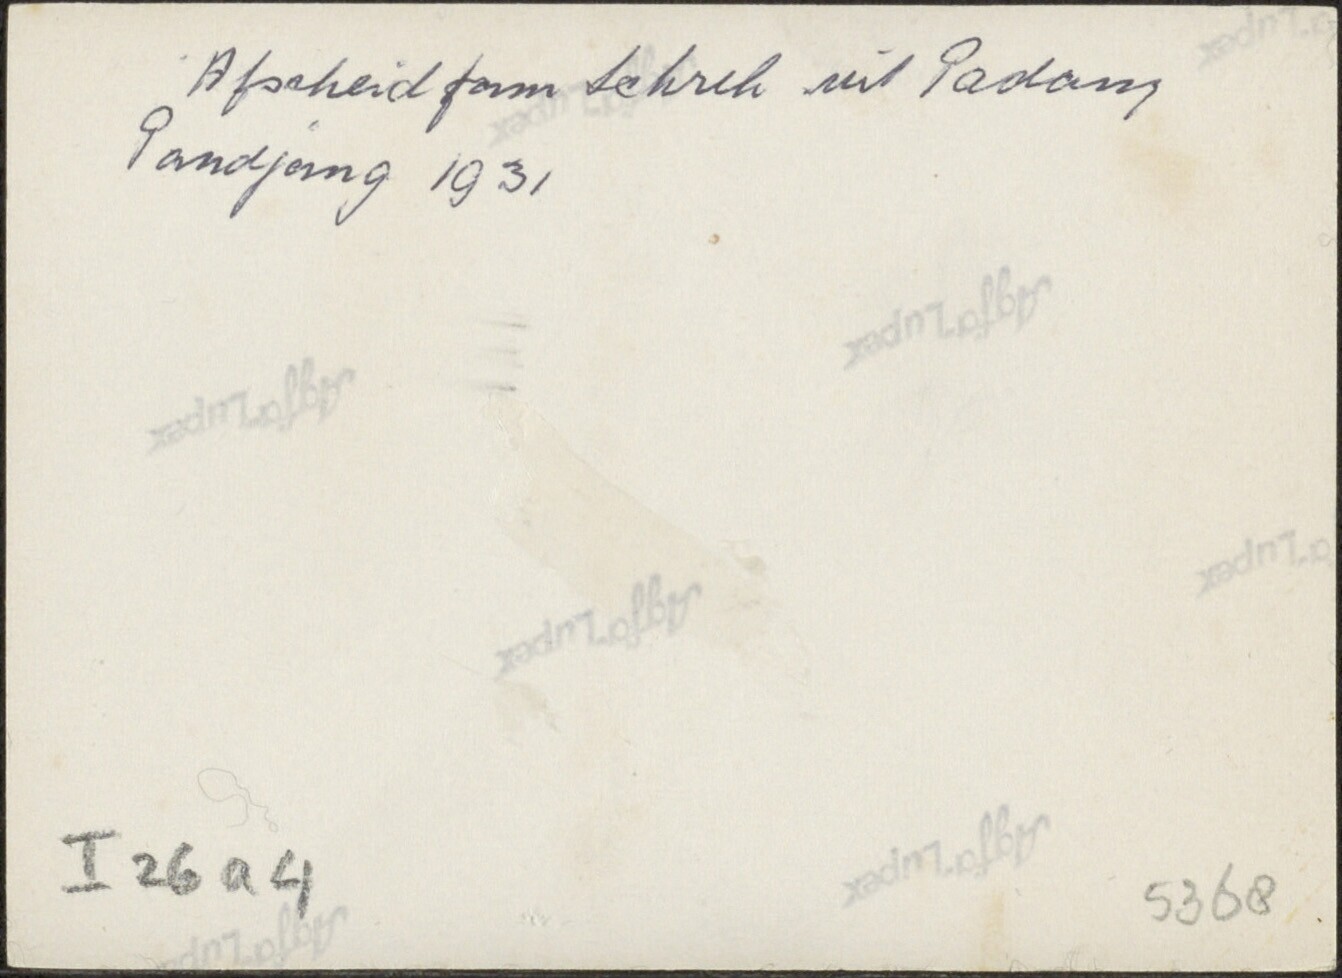 Afscheid fam Schreh uit Padang
Pandjang 1931
Agfa Lupex
Agfa Lupex
Agfa Lupex
Agfa Lupex
a Lupex
Agfa Lupex
I 26 a 4
5368
Agfa Lupex